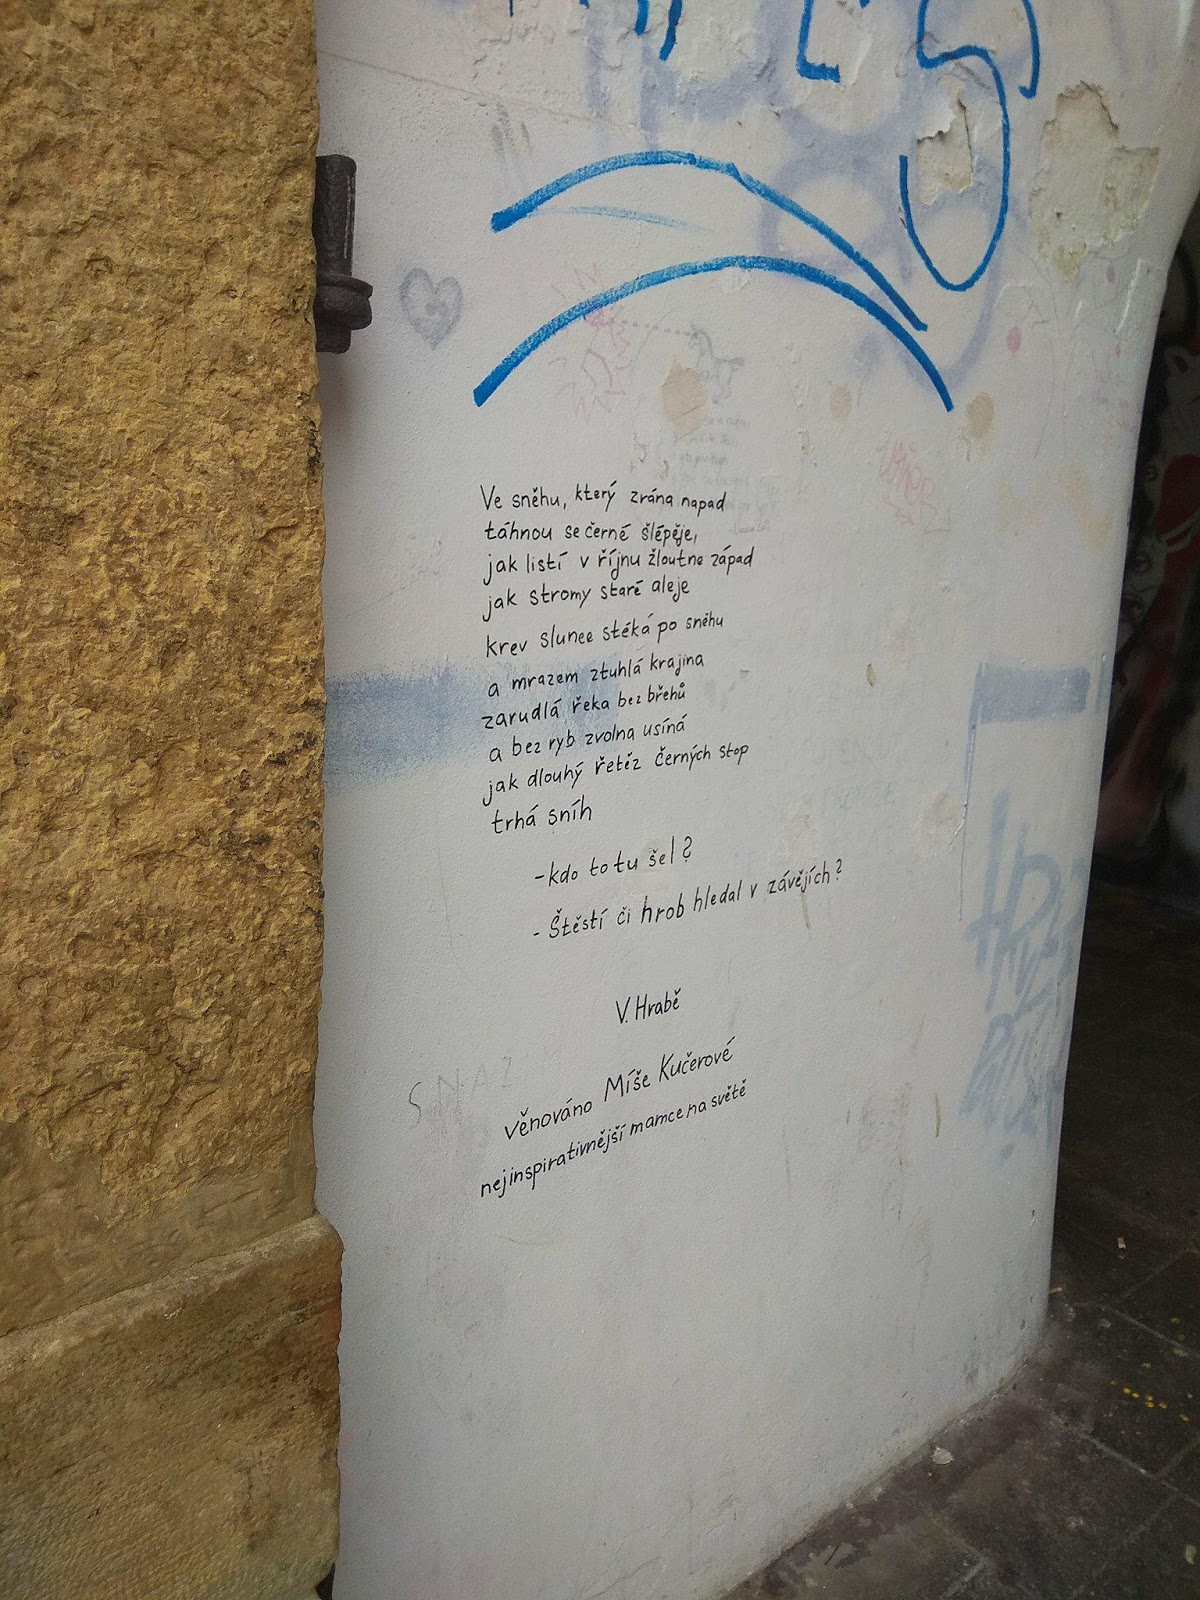 Ve sněhu, který zrána napad
táhnou se černé šlépěje,
jak listí v říjnu žloutne západ
jak stromy staré aleje
krev slunce stéká po sněhu
a mrazem ztuhlá krajina
zarudlá řeka bez břehů
a bez ryb zvolna usíná
jak dlouhý řetěz černých stop
trhá sníh
- kdo to tu šel?
- Štěstí či hrob hledal v závějích?
V. Hrabě
věnováno Míše Kučerové
nejinspirativnější mamce na světě